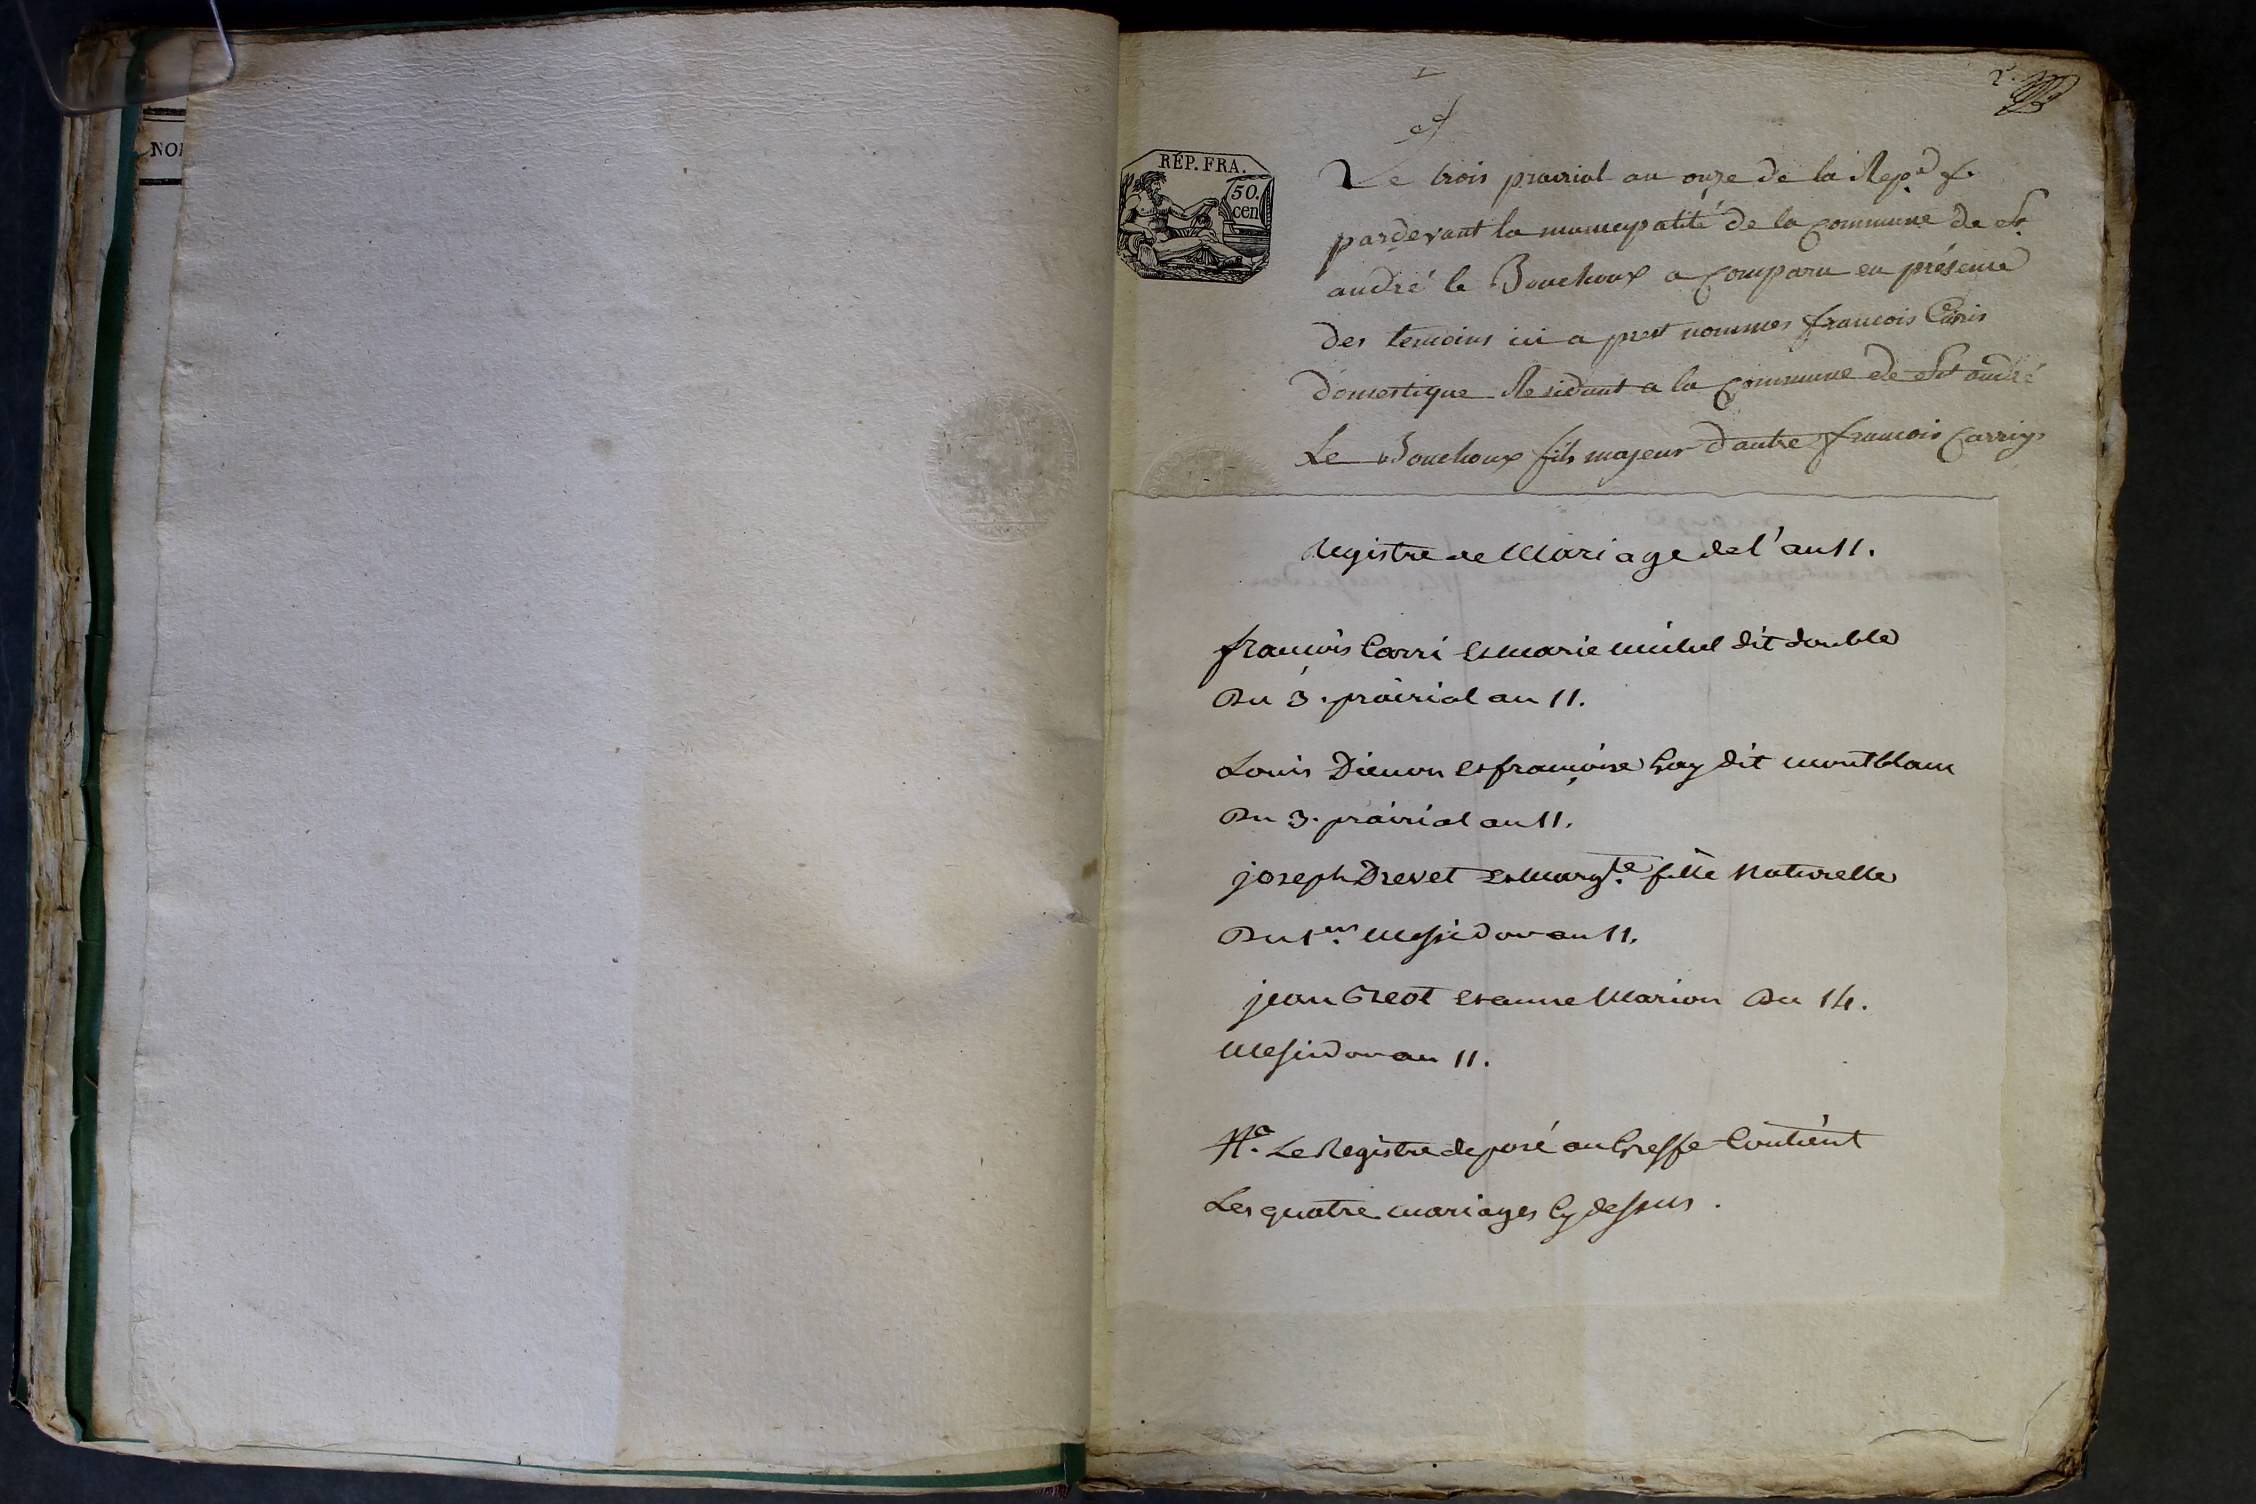 NO
2.
RÉP. FRA.
50.
cen
Le trois prairial an onze de la Rep.e f.
pardevant la municipalité de la Commune de St.
andré le Bouchoux a Comparu en présence
des temoins ici a prest nommes francois Carris
domestique Residant a la Commune de St andré
Le Bouchoux fils majeur d'autre francois Carris
Registre de Mariage de l'an 11.
francois Carri et marie michel dit double
Du 3. prairial an 11.
Louis Dienon et francoise Gay dit montblanc
Du 3. prairial an 11.
joseph Drevet et Marg.te fille Naturelle
Du 1.er Messidor an 11.
jean Greot et anne Marion Du 14.
Messidor an 11.
Na. Le Registre deposé au Greffe Contient
Les quatre mariages Cy dessus.